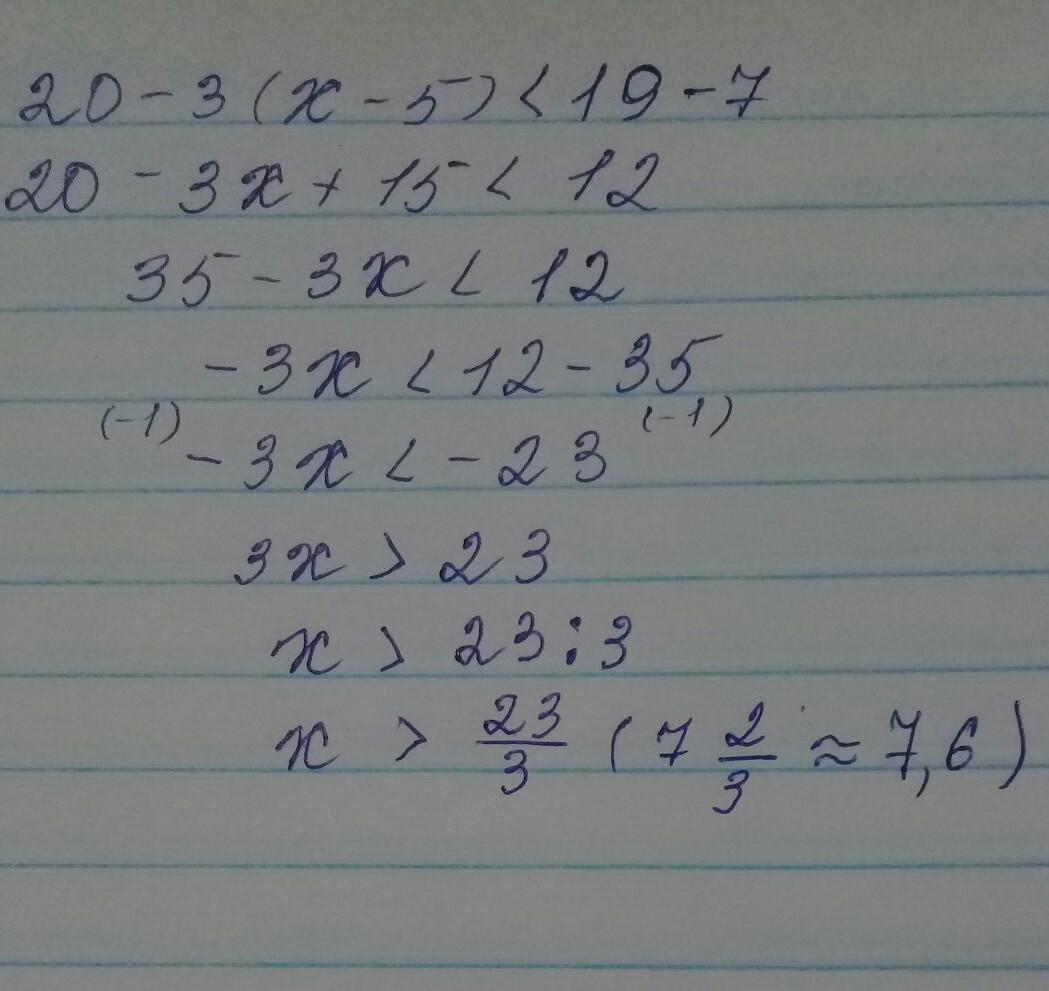 20 - 3 (x - 5) < 19 - 7
20 - 3x + 15 < 12
35 - 3x < 12
-3x < 12 - 35
(-1) -3x < -23 (-1)
3x > 23
x > 23 : 3
x > 23/3 (7 2/3 ≈ 7,6)